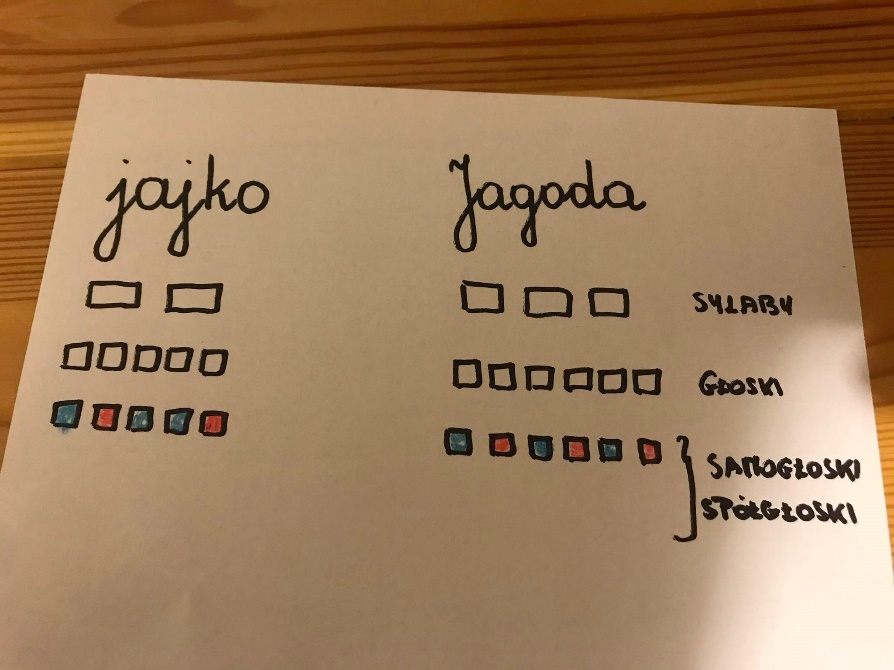 jajko Jagoda
SYLABY
GŁOSKI
SAMOGŁOSKI
SPÓŁGŁOSKI